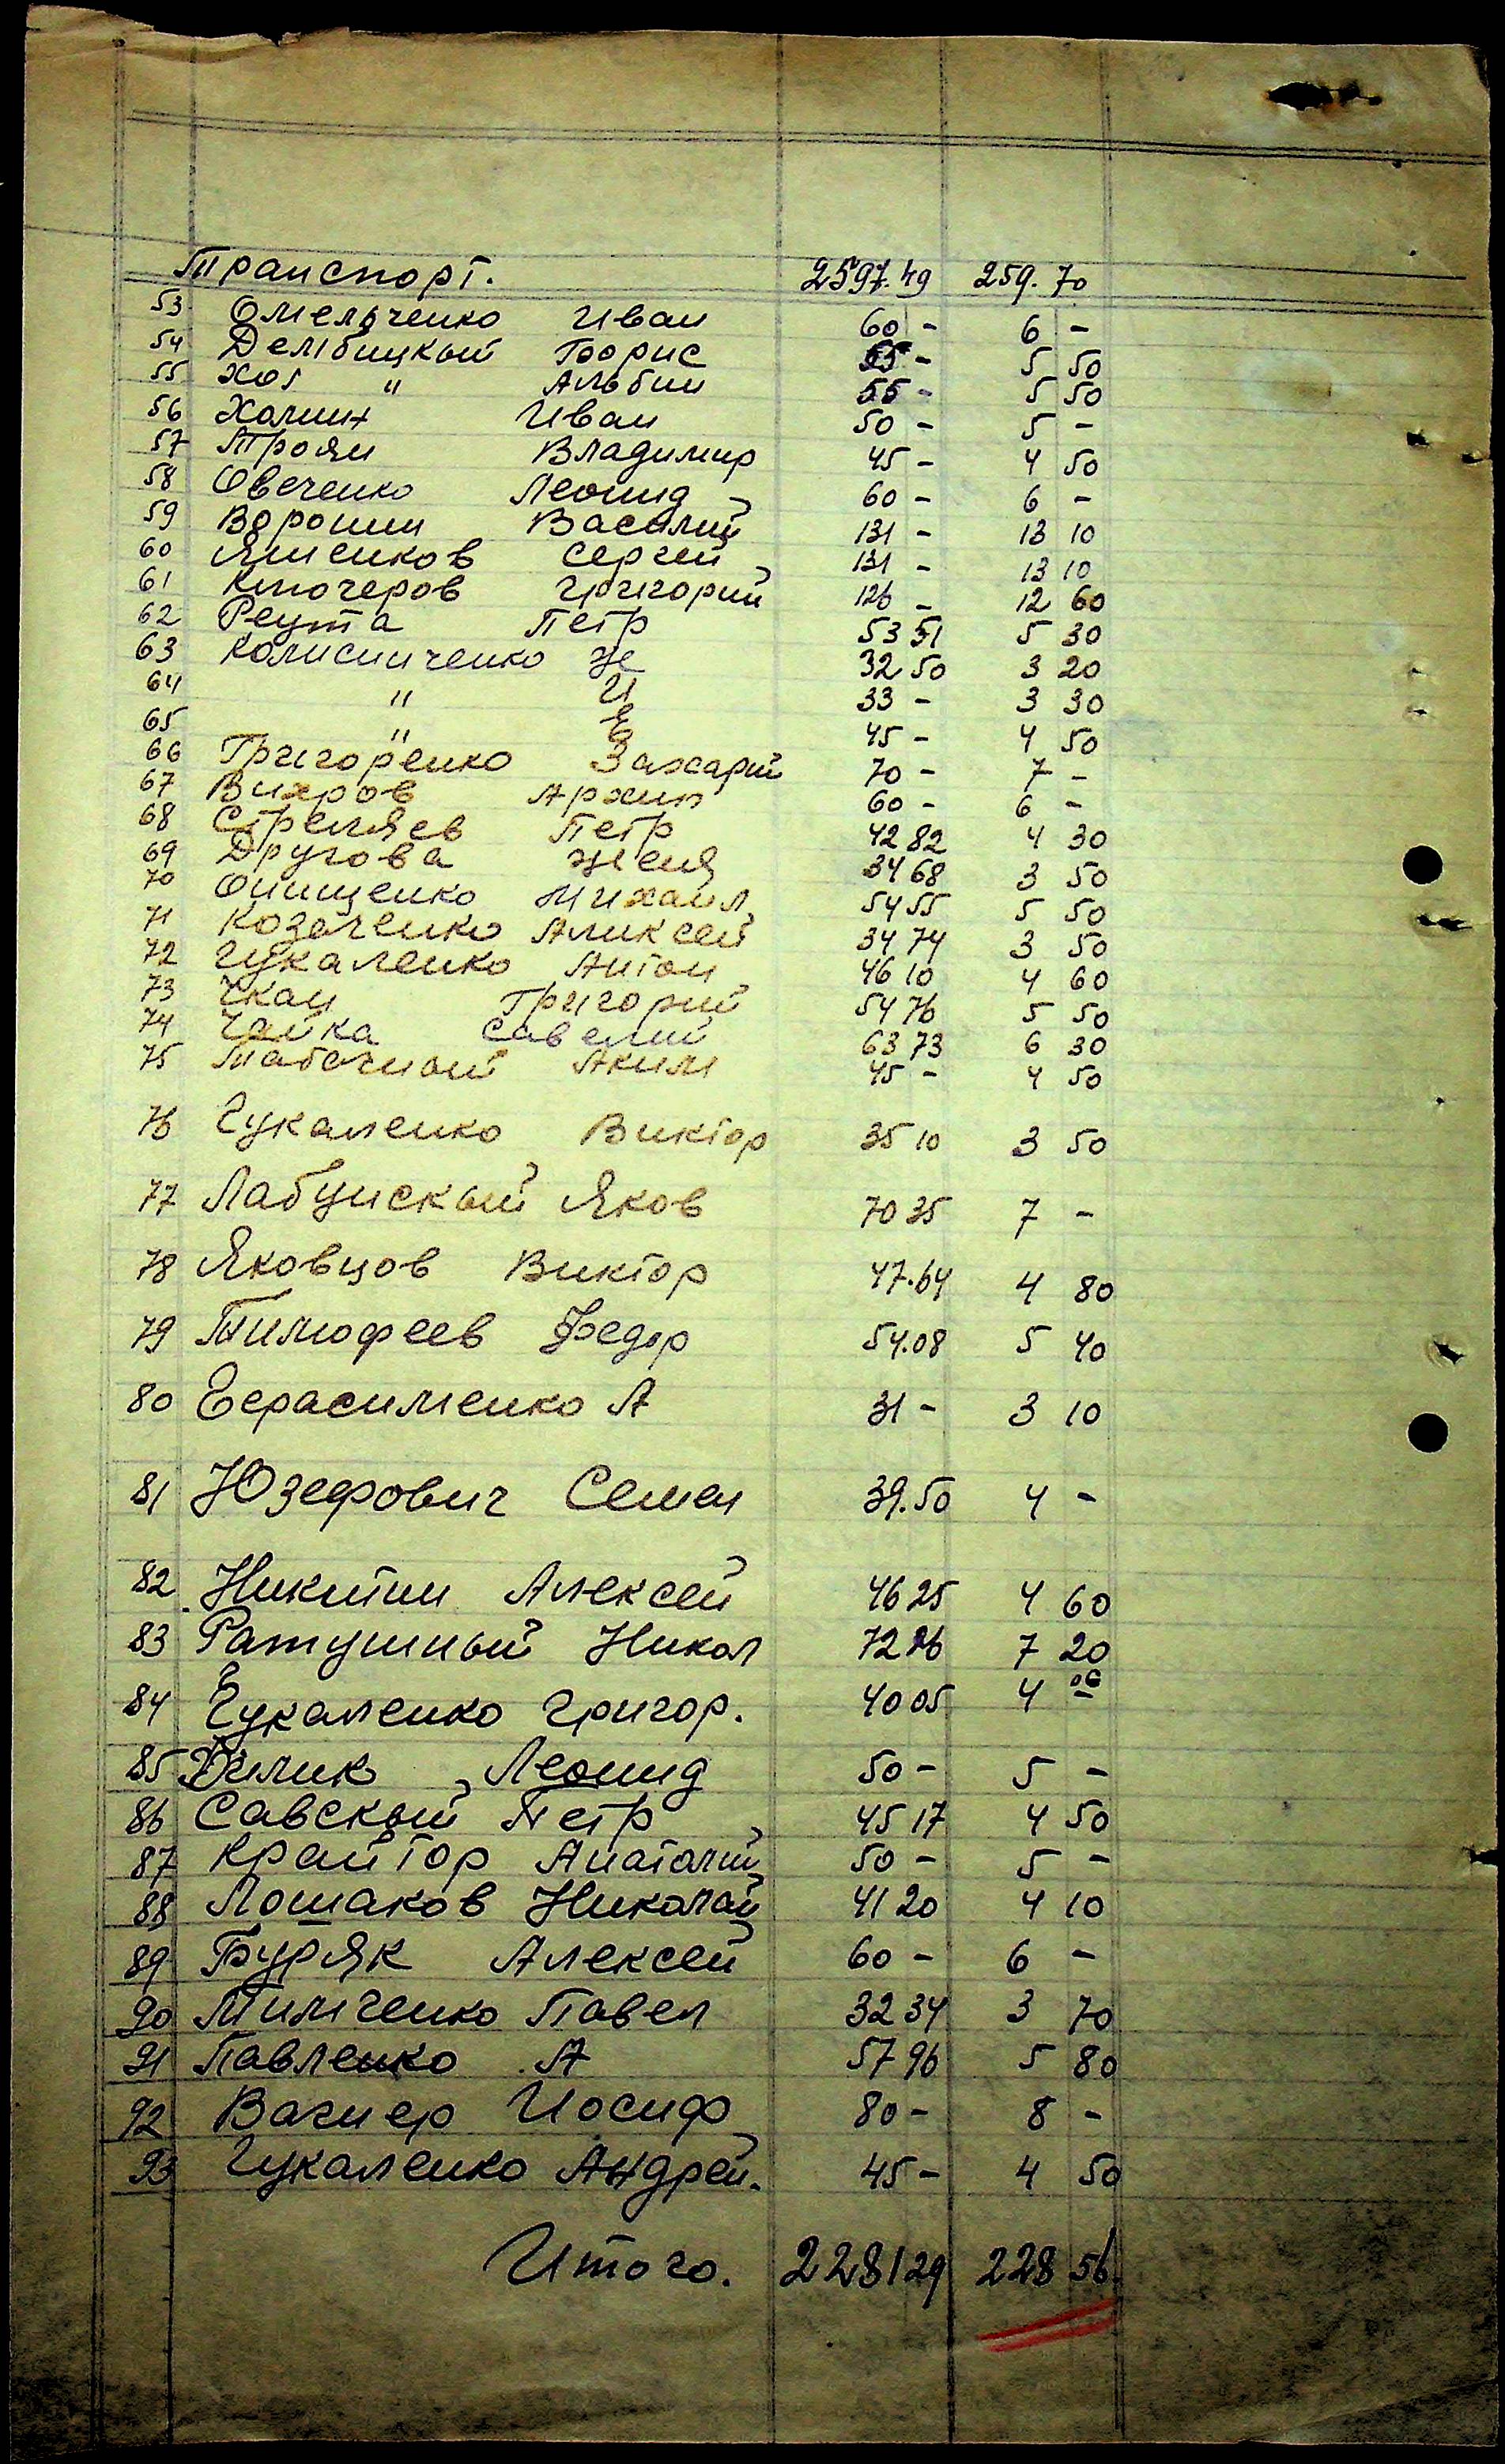 Транспорт. 2597.49 259.70
53 Омельченко Иван 60 - 6 -
54 Дембицкий Борис 55 - 5 50
55 " Альбин 55 - 5 50
56 Иван 50 - 5 -
57 Троян Владимир 45 - 4 50
58 Овеченко Леонид 60 - 6 -
59 Воронин Василий 131 - 13 10
60 Ященков Сергей 131 - 13 10
61 Ключеров Григорий 126 - 12 60
62 Реута Петр 53 51 5 30
63 Колисниченко Н 32 50 3 20
64 " И 33 - 3 30
65 " Е 45 - 4 50
66 Григоренко Захарий 70 - 7 -
67 Вихров Архип 60 - 6 -
68 Стреляев Петр 42 82 4 30
69 Другова Женя 34 68 3 50
70 Онищенко Михаил 54 55 5 50
71 Козаченко Аликсей 34 74 3 50
72 Чукаленко Антон 46 10 4 60
73 Чкан Григорий 54 76 5 50
74 Чайка Савелий 63 73 6 30
75 Табачный Аким 45 - 4 50
76 Чукаленко Виктор 35 10 3 50
77 Лабунский Яков 70 35 7 -
78 Яковцов Виктор 47.64 4 80
79 Тимофеев Федор 54.08 5 40
80 Герасименко А 31 - 3 10
81 Юзефович Семен 39.50 4 -
82 Никитин Алексей 46 25 4 60
83 Ратушный Никол 72 26 7 20
84 Чукаленко Григор. 40 05 4
85 Леонид 50 - 5 -
86 Савский Петр 45 17 4 50
87 Крайтор Анатолий 50 - 5 -
88 Лошаков Николай 41 20 4 10
89 Буряк Алексей 60 - 6 -
90 Тимченко Павел 32 34 3 70
91 Павленко А 57 96 5 80
92 Вагнер Иосиф 80 - 8 -
93 Чукаленко Андрей. 45 - 4 50
Итого. 2281 29 228 56.